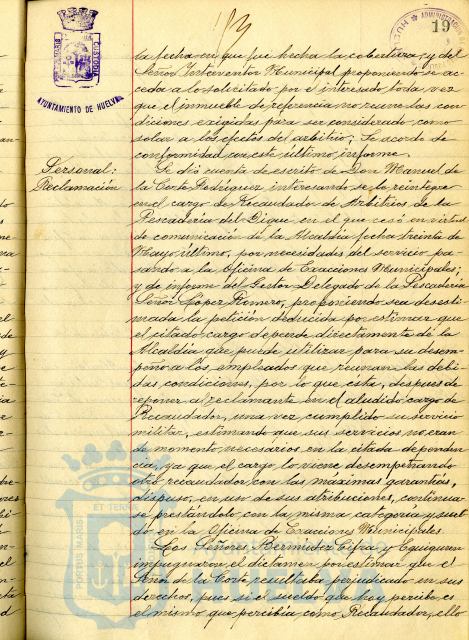 13
19
AYUNTAMIENTO DE HUELVA
la fecha en que fué hecha la cobertura, y del
Señor Interventor Municipal proponiendo se ac-
ceda a lo solicitado por el interesado toda vez
que el inmueble de referencia no reune las con-
diciones exigidas para ser considerado como
solar a los efectos del arbitrio; Se acordo de
conformidad con este último informe.
Personal:
Reclamación
Se dió cuenta de escrito de Don Manuel de
la Corte Rodriguez interesando se le reintegre
en el cargo de Recaudador de Arbitrios de la
Pescaderia del Dique, en el que cesó en virtud
de comunicación de la Alcaldia fecha treinta de
Mayo último, por necesidades del servicio pa-
sando a la Oficina de Exacciones Municipales;
y de informe del Gestor Delegado de la Pescaderia
Señor López Romero, proponiendo sea deses-
timada la petición deducida por estimar que
el citado cargo depende directamente de la
Alcaldia que puede utilizar para su desem-
peño a los empleados que reunan las debi-
das condiciones, por lo que esta, después de
reponer al reclamante en el aludido cargo de
Recaudador, una vez cumplido su servicio
militar, estimando que sus servicios no eran
de momento necesarios en la citada dependen-
cia, ya que el cargo lo viene desempeñando
otro recaudador con las máximas garantias,
dispuso, en uso de sus atribuciones, continua-
se prestándolo con la misma categoria y suel-
do en la Oficina de Exacciones Municipales.
Los Señores Bermudez Cifra y Eguiguren
impugnaron el dictamen por estimar que el
Señor de la Corte resultaba perjudicado en sus
derechos, pues si el sueldo que hoy percibe es
el mismo que percibia como Recaudador, ello
PORTUS MARIS ET TERRAE